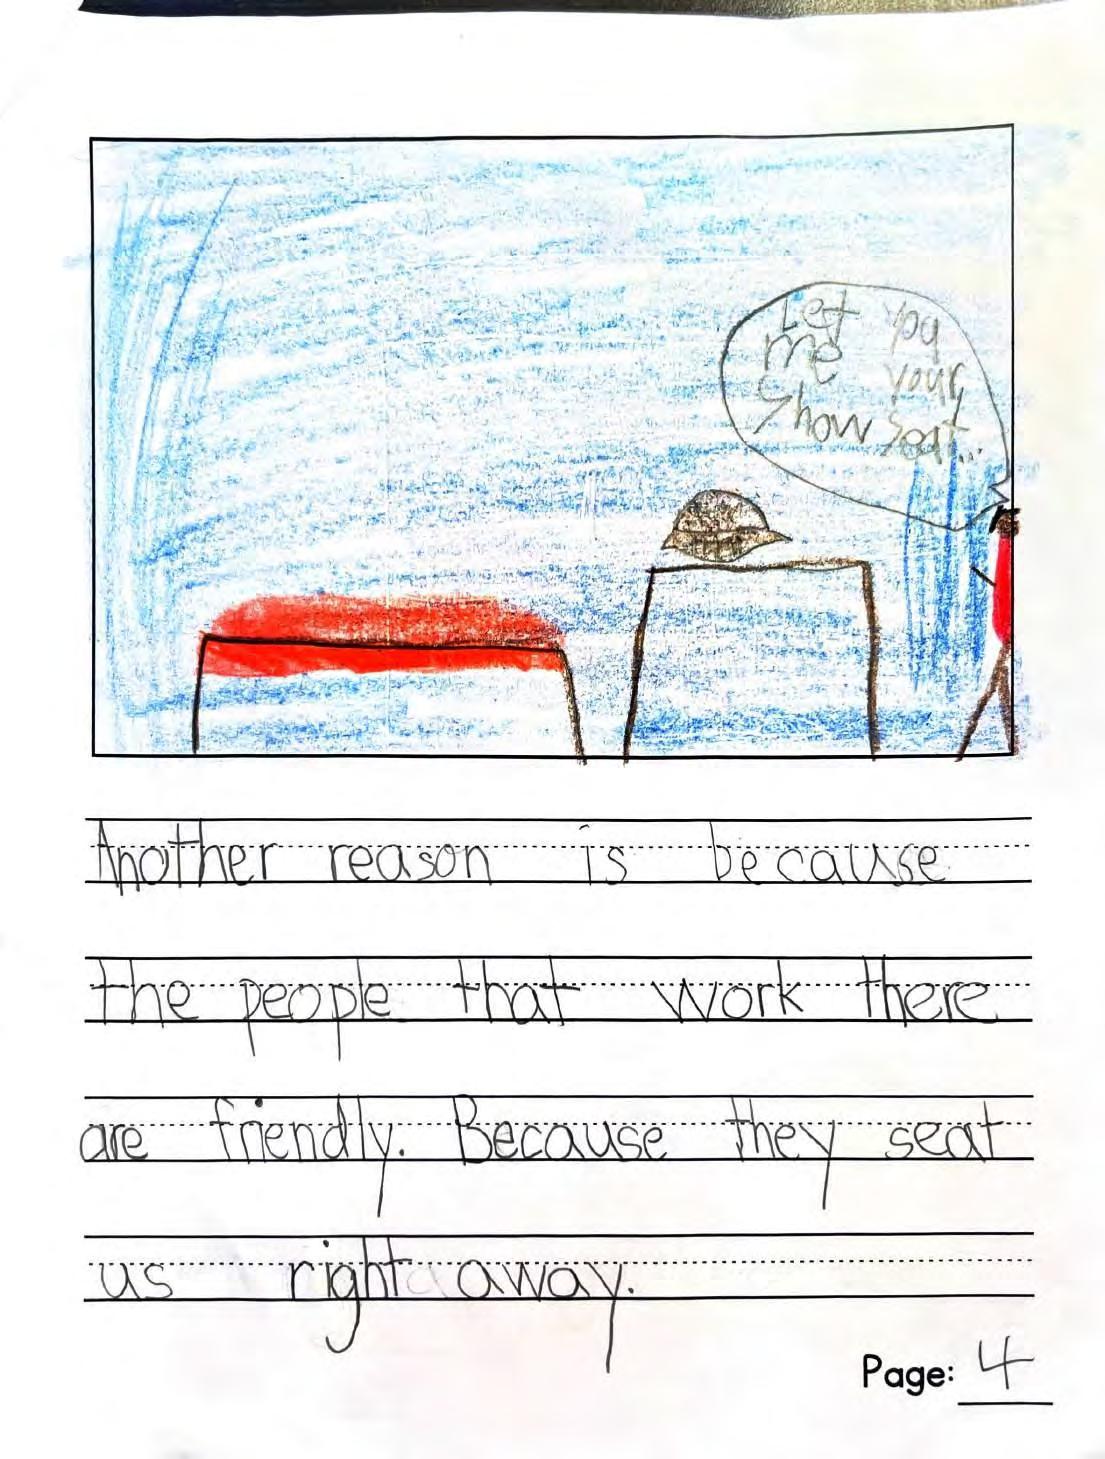 Let you
me your
Show Seat...
Another reason is because
the people that work there
are friendly. Because they seat
us right away.
Page: 4